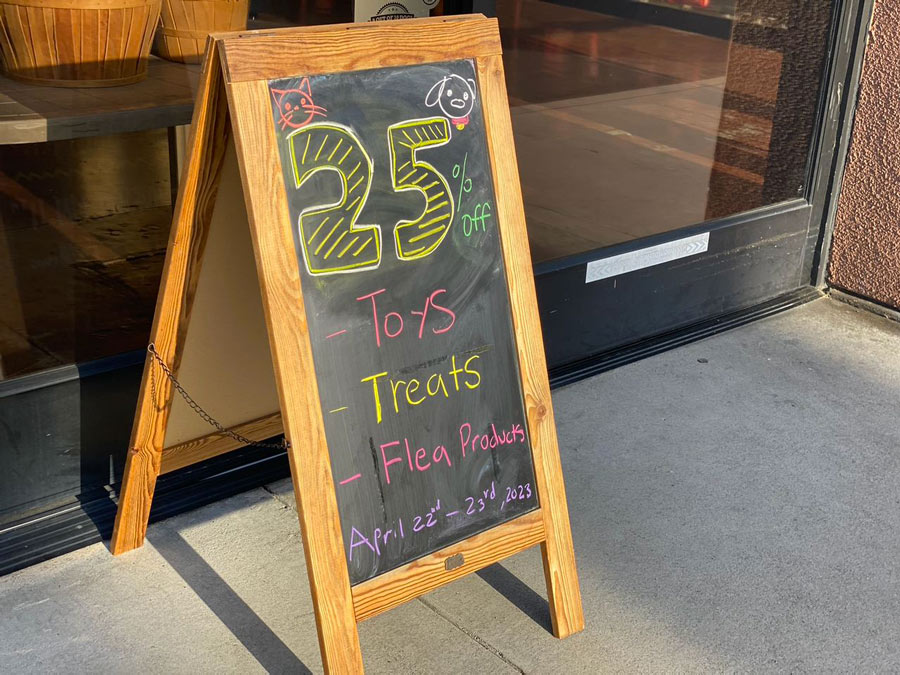 25% off
- Toys
- Treats
- Flea Products
April 22nd - 23rd, 2023